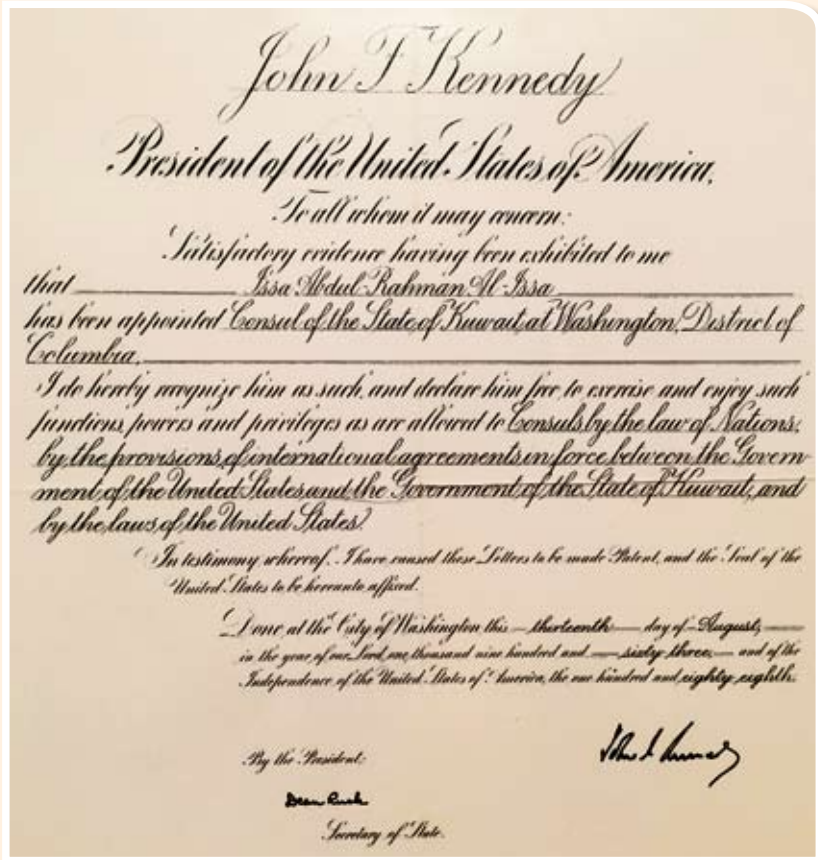 John F Kennedy
President of the United States of America.
To all whom it may concern:
Satisfactory evidence having been exhibited to me
that Issa Abdul-Rahman Al-Issa
has been appointed Consul of the State of Kuwait, at Washington, District of
Columbia.
I do hereby recognize him as such, and declare him free to exercise and enjoy such
functions, powers and privileges as are allowed to Consuls by the law of Nations,
by the provisions of international agreements in force between the Govern-
ment of the United States and the Government of the State of Kuwait, and
by the laws of the United States.
In testimony whereof, I have caused these Letters to be made Patent, and the Seal of the
United States to be hereunto affixed.
Done at the City of Washington this thirteenth day of August,
in the year of our Lord one thousand nine hundred and sixty-three, and of the
Independence of the United States of America, the one hundred and eighty-eighth.
By the President:
Dean Rusk
Secretary of State.